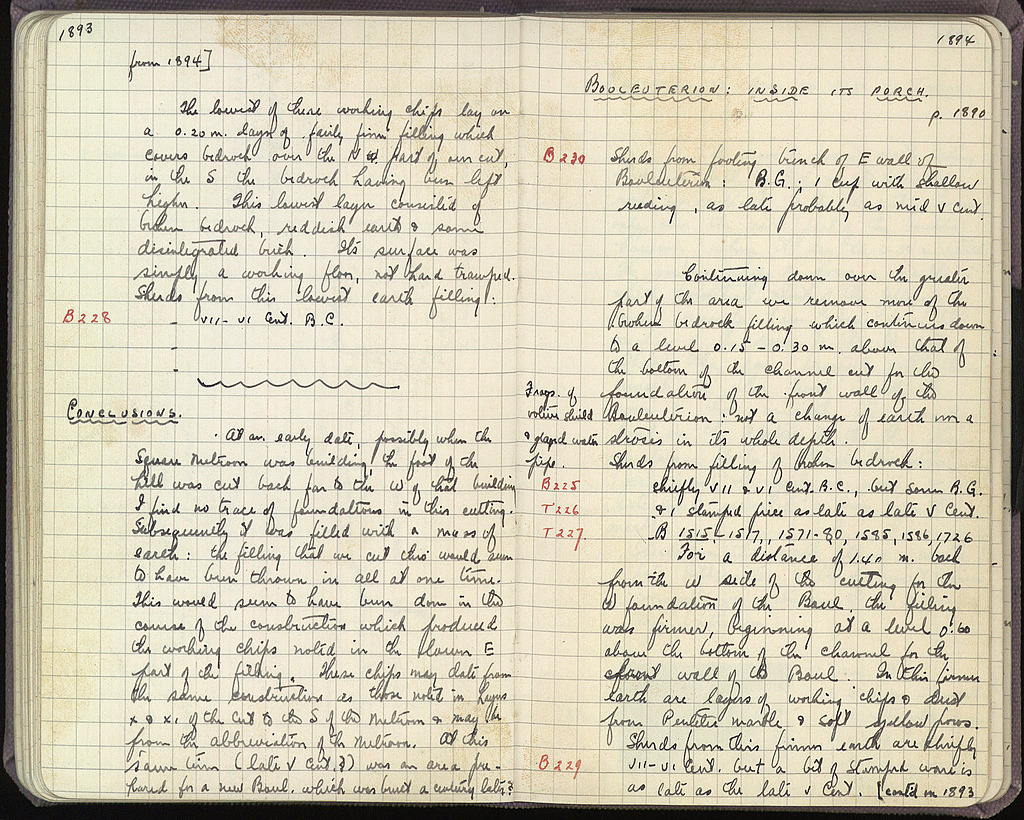 1893
from 1894]
The lowest of these working chips lay on
a 0.20 m. layer of fairly firm filling which
covers bedrock over the N part of our cut,
in the S the bedrock having been left
higher. This lowest layer consisted of
broken bedrock, reddish earth & some
disintegrated brick. Its surface was
simply a working floor, not hard tramped.
Sherds from this lowest earth filling:
B228 - VII - VI Cent. B.C.
-
-
CONCLUSIONS.
At an early date, possibly when the
Square Metroon was building, the foot of the
hill was cut back far to the W of that building
I find no trace of foundations in this cutting.
Subsequently it was filled with a mass of
earth: the filling that we cut thro' would seem
to have been thrown in all at one time.
This would seem to have been done in the
course of the construction which produced
the working chips noted in the lower E
part of the filling. These chips may date from
the same construction as those noted in layers
X & XI of the cut to the S of the Metroon & may be
from the abbreviation of the Metroon. At this
same time (late V Cent.?) was an area pre-
pared for a new Boul. which was built a century later?
1894
BOULEUTERION: INSIDE ITS PORCH.
p. 1890
B230 Sherds from footing trench of E wall of
Bouleuterion: B.G.; 1 cup with shallow
reeding, as late probably as mid V Cent.
Continuing down over the greater
part of the area we remove more of the
broken bedrock filling which continues down
to a level 0.15 - 0.30 m. above that of
the bottom of the channel cut for the
foundation of the front wall of the
Bouleuterion: not a change of earth nor a
strosis in its whole depth.
Frags. of
votive shield
& glazed water
pipe.
Sherds from filling of broken bedrock:
B225 chiefly VII & VI Cent. B.C., but some B.G.
T226 & 1 stamped piece as late as late V Cent.
T227 B 1515-1517, 1571-80, 1585, 1586, 1726
For a distance of 1.40 m. back
from the W side of the cutting for the
W foundation of the Boul. the filling
was firmer, beginning at a level 0.60
above the bottom of the channel for the
front wall of the Boul. In this firmer
earth are layers of working chips & dust
from Pentelic marble & soft yellow poros.
Sherds from this firmer earth are chiefly
B229 VII-VI Cent. but a bit of stamped ware is
as late as the late V Cent. [cont'd on 1893